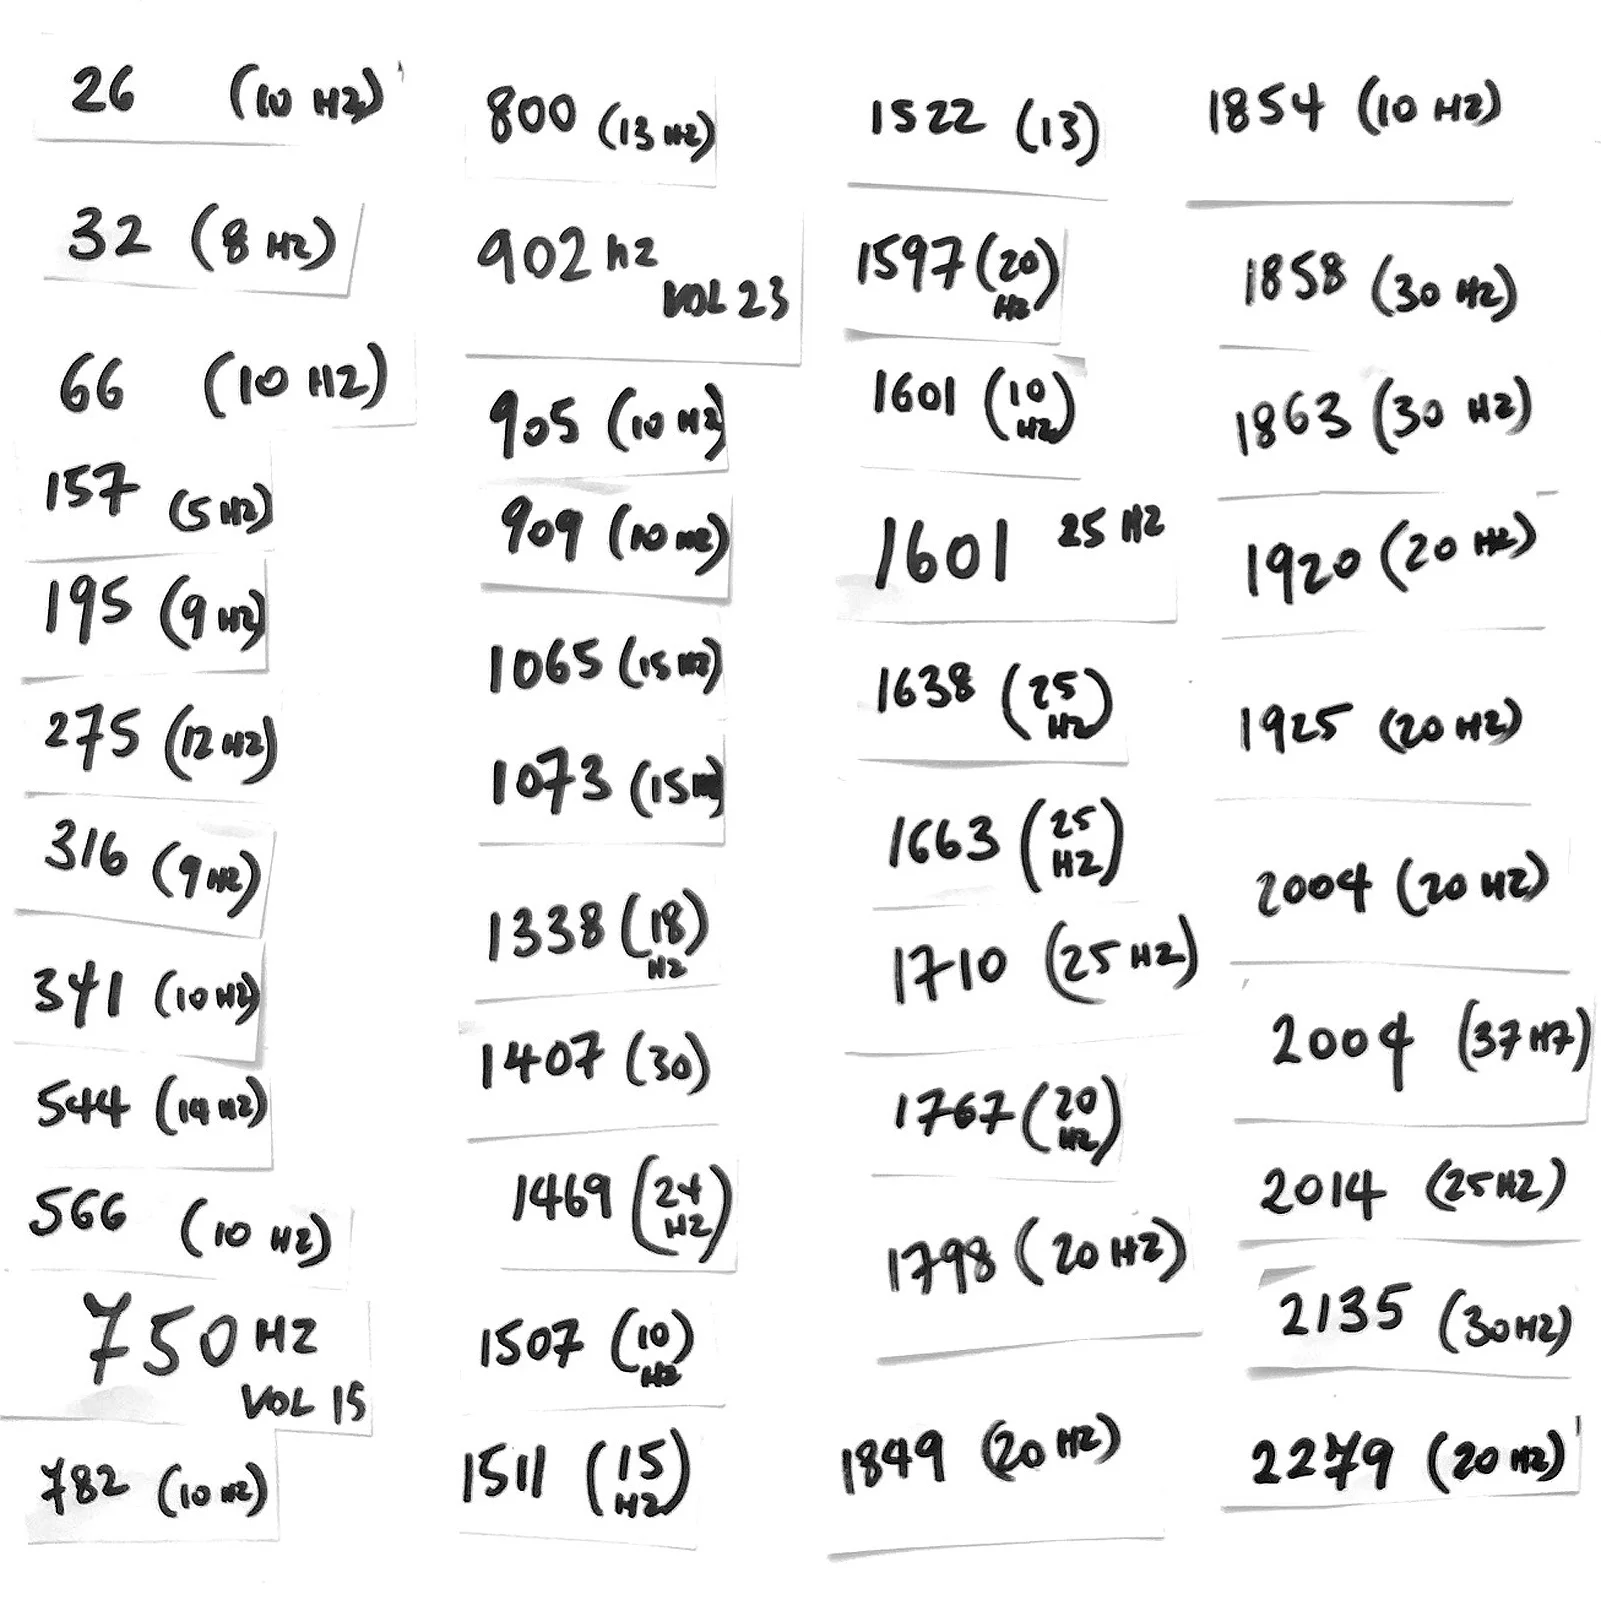 26 (10 HZ)
32 (8 HZ)
66 (10 HZ)
157 (5 HZ)
195 (9 HZ)
275 (12 HZ)
316 (9 HZ)
341 (10 HZ)
544 (14 HZ)
566 (10 HZ)
750 HZ
VOL 15
782 (10 HZ)
800 (13 HZ)
902 hz
VOL 23
905 (10 HZ)
909 (10 HZ)
1065 (15 HZ)
1073 (15
1338 (18
HZ)
1407 (30)
1469 (24
HZ)
1507 (10
HZ)
1511 (15
HZ)
1522 (13)
1597 (20
HZ)
1601 (10
HZ)
1601 25 HZ
1638 (25
HZ)
1663 (25
HZ)
1710 (25 HZ)
1767 (20
HZ)
1798 (20 HZ)
1849 (20 HZ)
1854 (10 HZ)
1858 (30 HZ)
1863 (30 HZ)
1920 (20 HZ)
1925 (20 HZ)
2004 (20 HZ)
2004 (37 HZ)
2014 (25HZ)
2135 (30HZ)
2279 (20 HZ)